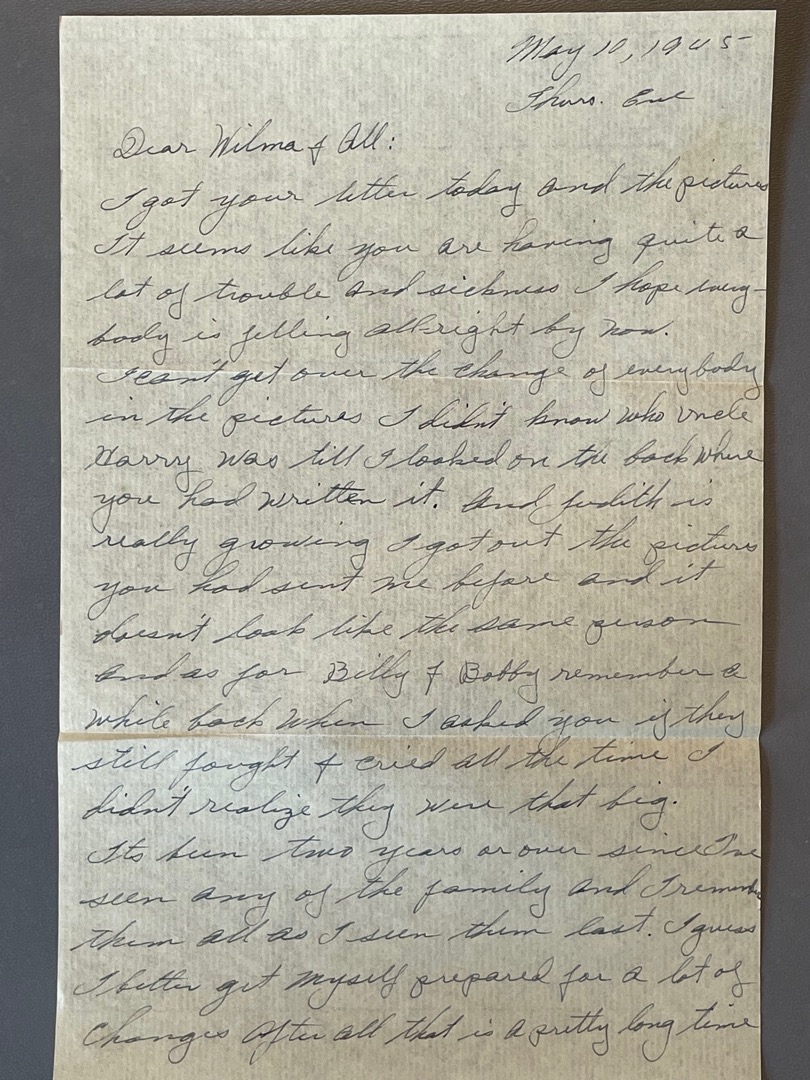 May 10, 1945
Thurs. Eve
Dear Wilma & All:
I got your letter today and the pictures
It seems like you are having quite a
lot of trouble and sickness I hope every-
body is felling all-right by now.
I can't get over the change of everybody
in the pictures I didn't know who Uncle
Harry was till I looked on the back where
you had written it. And Judith is
really growing I got out the pictures
you had sent me before and it
doesn't look like the same person
and as for Billy & Bobby remember a
while back when I asked you if they
still fought & cried all the time I
didn't realize they were that big.
Its been two years or over since I've
seen any of the family and I remember
them all as I seen them last. I guess
I better get myself prepared for a lot of
changes after all that is a pretty long time